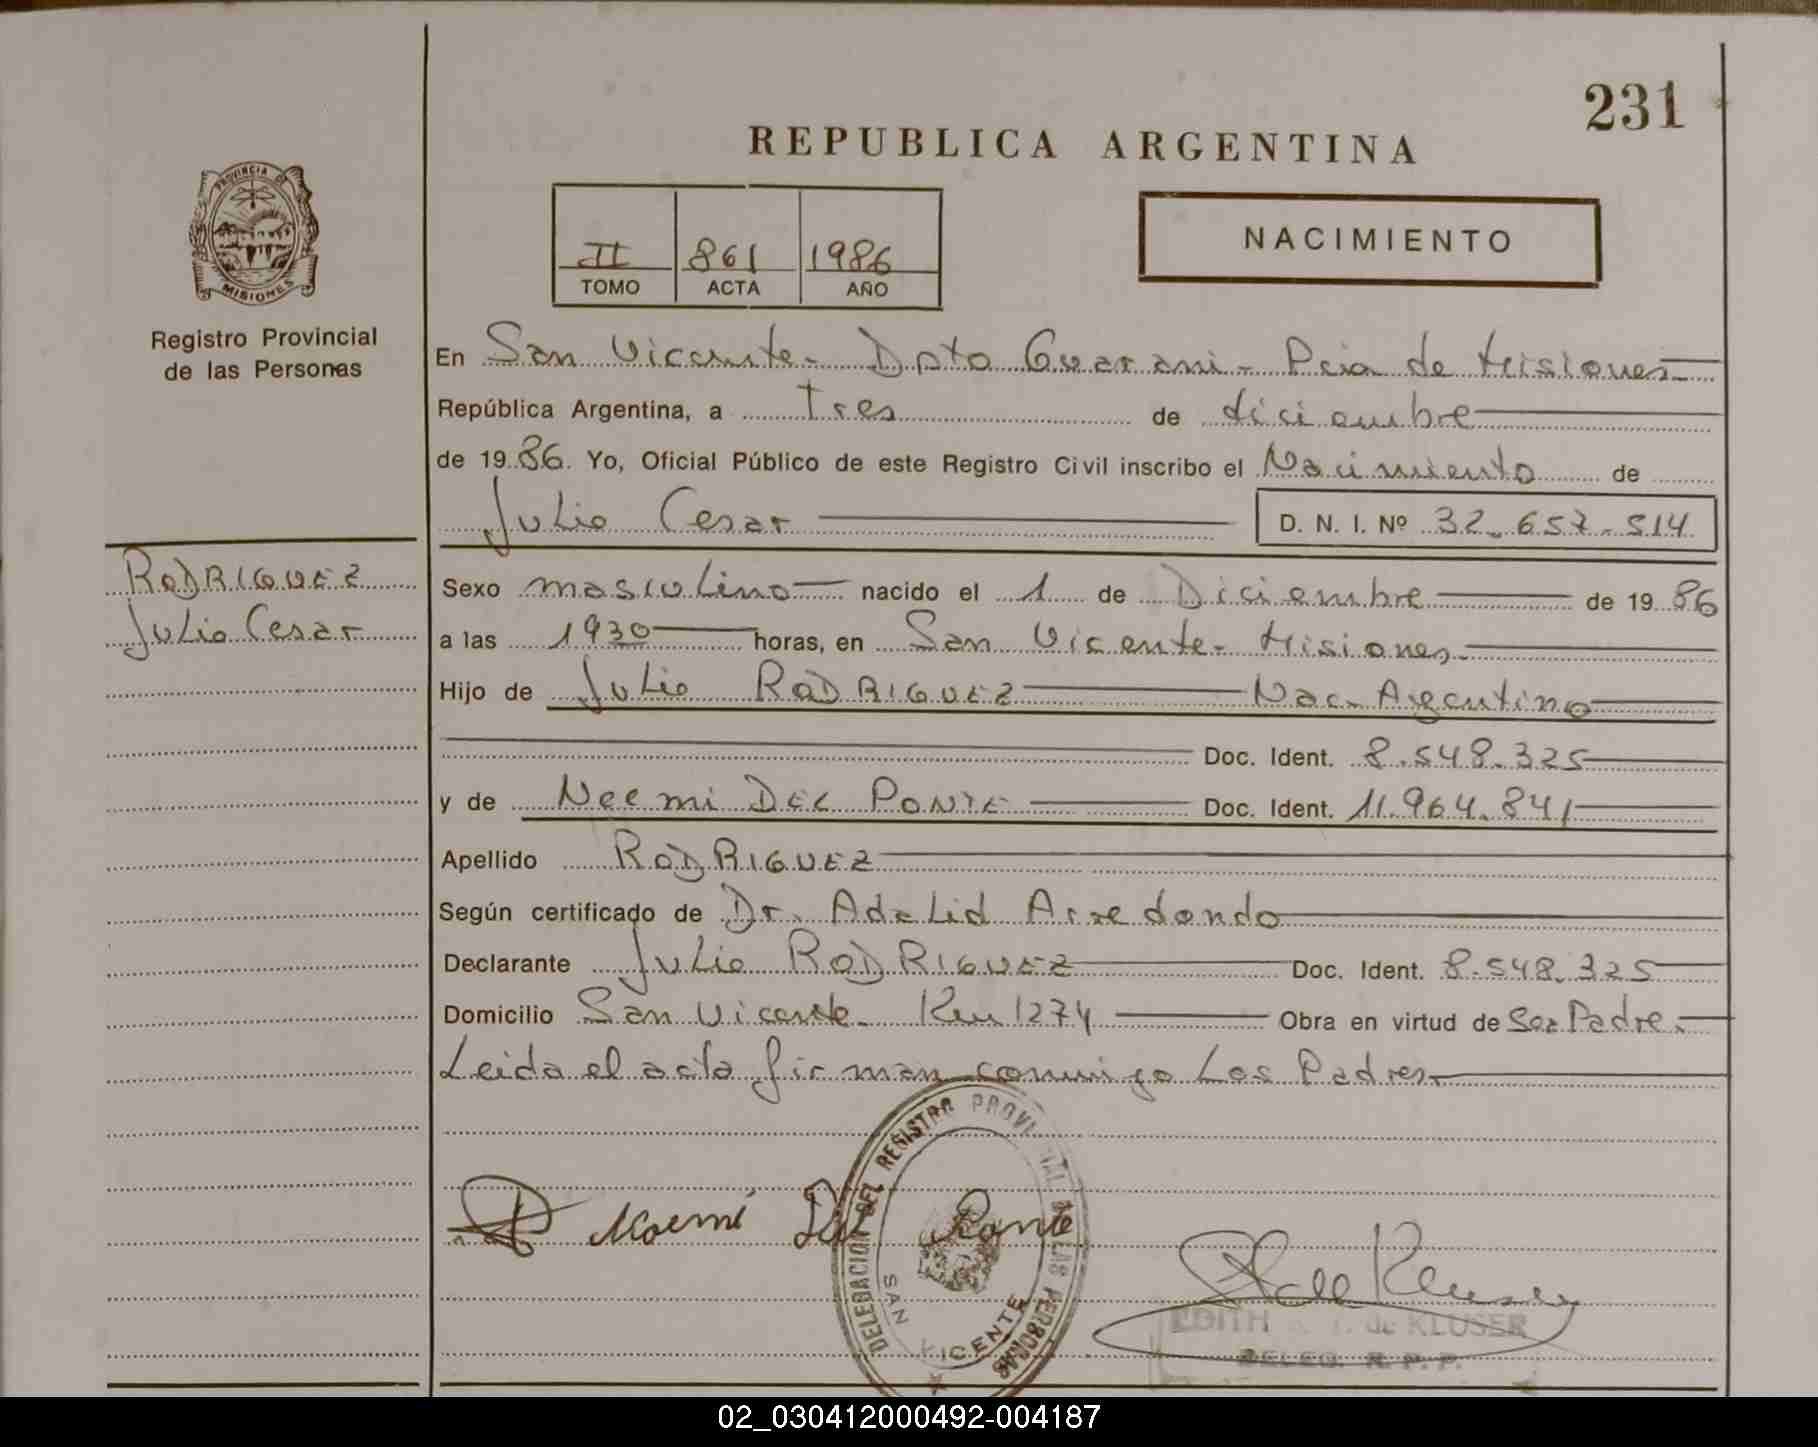 231
REPUBLICA ARGENTINA
PROVINCIA DE
MISIONES
Registro Provincial
de las Personas
II 861 1986
TOMO ACTA AÑO
NACIMIENTO
En San Vicente - Dpto Guarani - Pcia de Misiones
República Argentina, a Tres de diciembre
de 1986. Yo, Oficial Público de este Registro Civil inscribo el Nacimiento de
Julio Cesar D. N. I. Nº 32.657.514
RODRIGUEZ
Julio Cesar
Sexo masculino nacido el 1 de Diciembre de 1986
a las 1930 horas, en San Vicente - Misiones
Hijo de Julio RODRIGUEZ Nac. Argentino
Doc. Ident. 8.548.325
y de Noemi DEL PONTE Doc. Ident. 11.964.841
Apellido RODRIGUEZ
Según certificado de Dr. Adalid Arredondo
Declarante Julio RODRIGUEZ Doc. Ident. 8.548.325
Domicilio San Vicente Km 1274 Obra en virtud de Ser Padre.
Leida el acta firman conmigo Los Padres
Noemi Del Ponte
DELEGACION DEL REGISTRO PROVINCIAL DE LAS PERSONAS
SAN VICENTE
de Kluser
EDITH de KLUSER
DELEG. R. P. P.
02_030412000492-004187